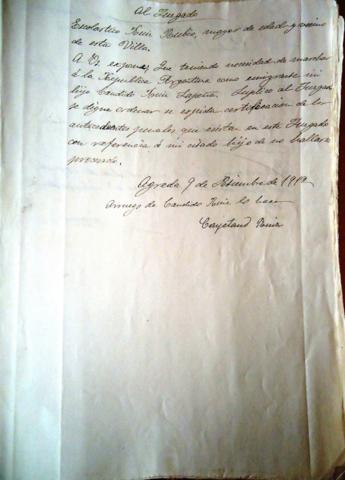 Al Juzgado
Escolastico Ruiz Rubio, mayor de edad y vecino
de esta Villa.
A V. expone: Que teniendo necesidad de marchar
á la República Argentina como emigrante mi
hijo Candido Ruiz Suplico al Juzgado
se digne ordenar se expida certificación de los
antecedentes penales que exista en este Juzgado
con referencia á mi citado hijo de no hallarse
procesado.
Agreda 9 de de 191
Arruego de Candido Ruiz lo hace
Cayetano Ruiz